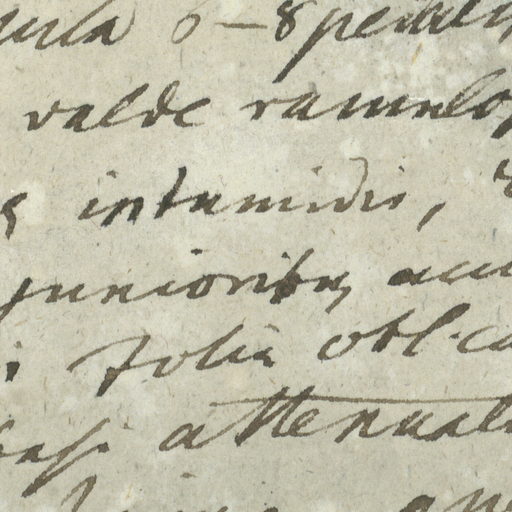 6–8pedali
valde ramulos
intumidis,
junioribus, acu
folia obl. ca
basi attenuat